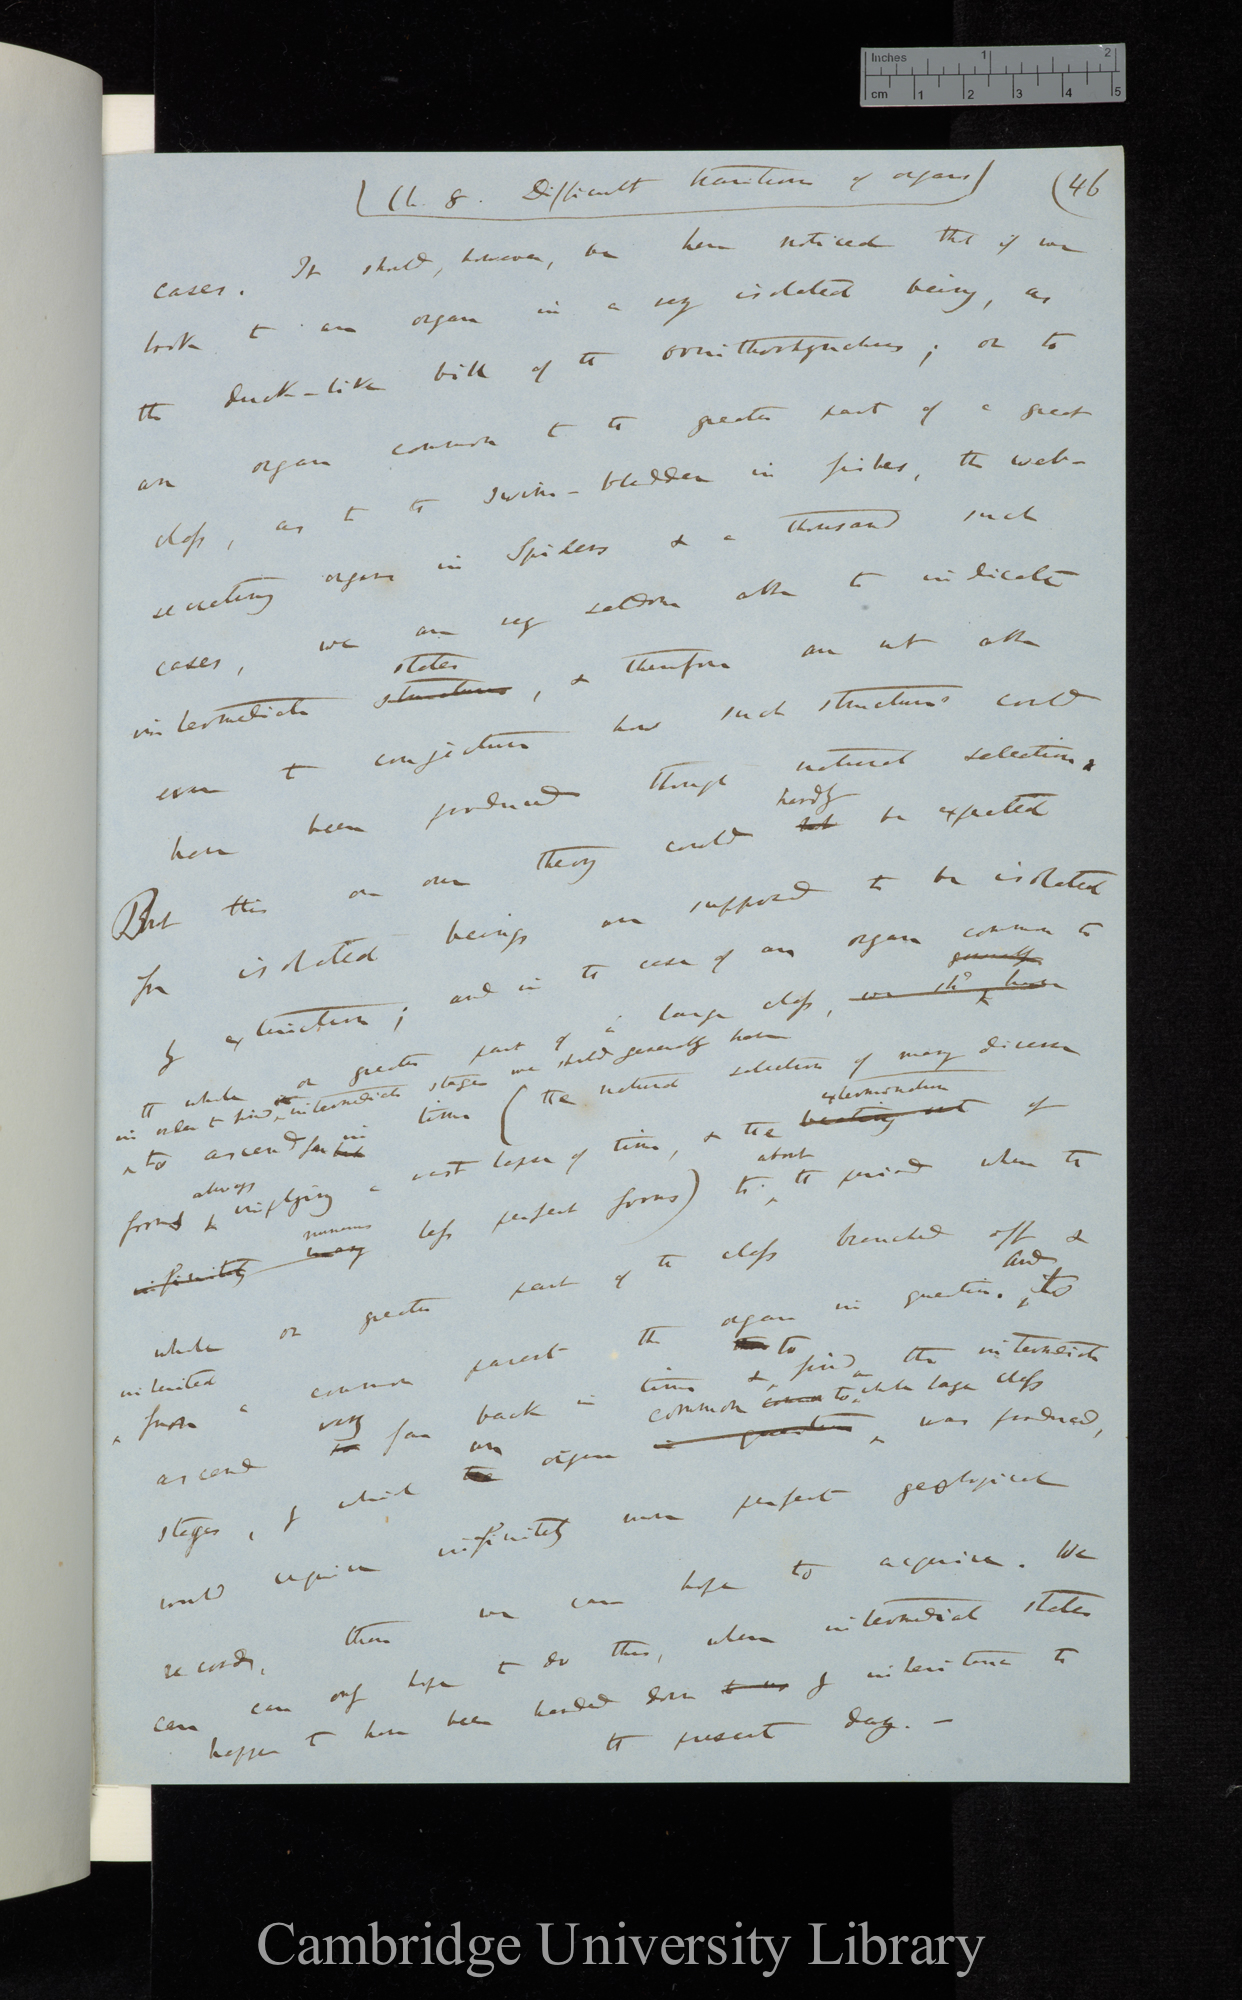 Inches 1 2
cm 1 2 3 4 5
(Ch. 8. Difficult transitions of organs) (46
cases. It should, however, be here noticed that if we
look to an organ in a very isolated being, as
the duck-like bill of the ornithorhynchus; or to
an organ common to the greater part of a great
class, as to the swim-bladder in fishes, the web-
secreting organ in Spiders & a thousand such
cases, we are very seldom able to indicate
states
intermediate structures, & therefore are not able
even to conjecture how such structures could
have been produced through natural selection.
hardly
But this on our theory could not be expected
for isolated beings are supposed to be isolated
by extinction; and in the case of an organ common to
generally
the whole or greater part of a large class, we shd have
in order to find the intermediate stages we should generally have
to ascend far but in time (the natural selection of many diverse
extermination
forms & always implying a vast lapse of time, & the beating out of
infinitely many numerous less perfect forms) to about the period when the
whole or greater part of the class branched off &
inherited from a common parent the organ in question. And to
ascend so very far back in time & to find the intermediate
common to whole large class
stages, by which the an organ in question was produced,
would require infinitely more perfect geological
records, than we can hope to acquire. We
can only hope to do this, when intermediate states
happen to have been handed down to us by inheritance to
the present day. —
Cambridge University Library